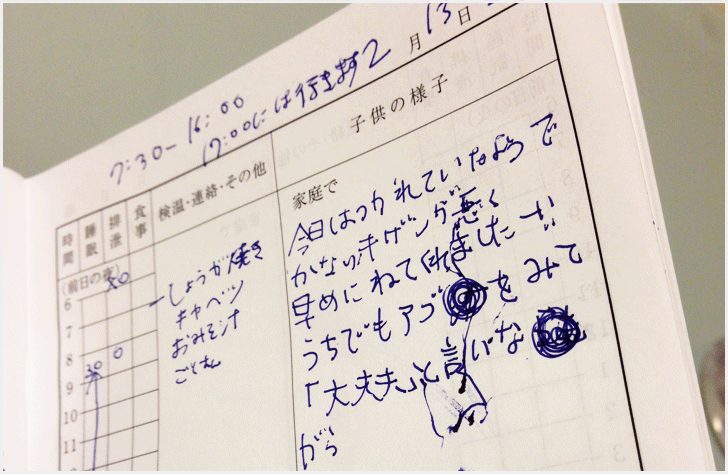 月13日
7:30-16:00
17:00には行きます
時間
睡眠
排泄
食事
検温・連絡・その他
子供の様子
(前日の夜)
6
7
8
9
10
11
30
しょうが焼き
キャベツ
おみそ汁
ごはん
家庭で
今日はつかれていたようで
かなりキゲンが悪く
早めにねてくれましたが
うちでもアゴ をみて
「大丈夫」と言いな
がら